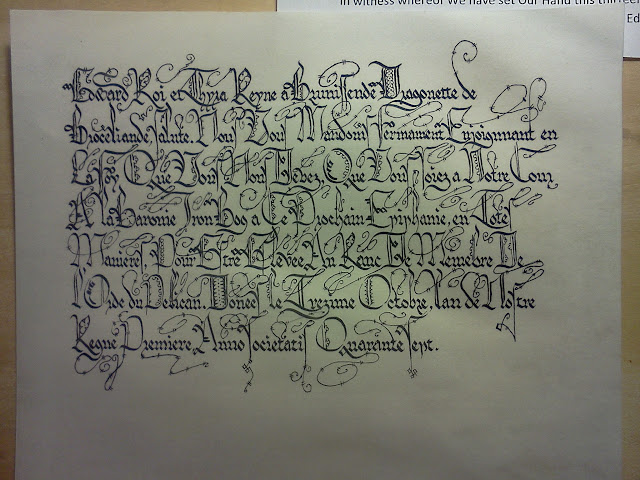 In witness whereof We have set Our Hand this thirteen
Ed
Edward Roi et Thyra Reyne a Brunissende Dragonette de
Broceliande, Salute. Nous Vous Mandons Fermament Enjoignnant en
La Foy Que Vous Nous Devez, Que Vous Soiez a Notre Cour
A la Baronie Iron Bog a Le Prochain Epiphanie, en Totes
Manieres, Pour Etre Elevee Au Renc De Memebre De
l'Ordre du Pelican. Donee Le Trezime Octobre, l'an de Nostre
Regne Premiere, Anno Societatis Quarante Sept.